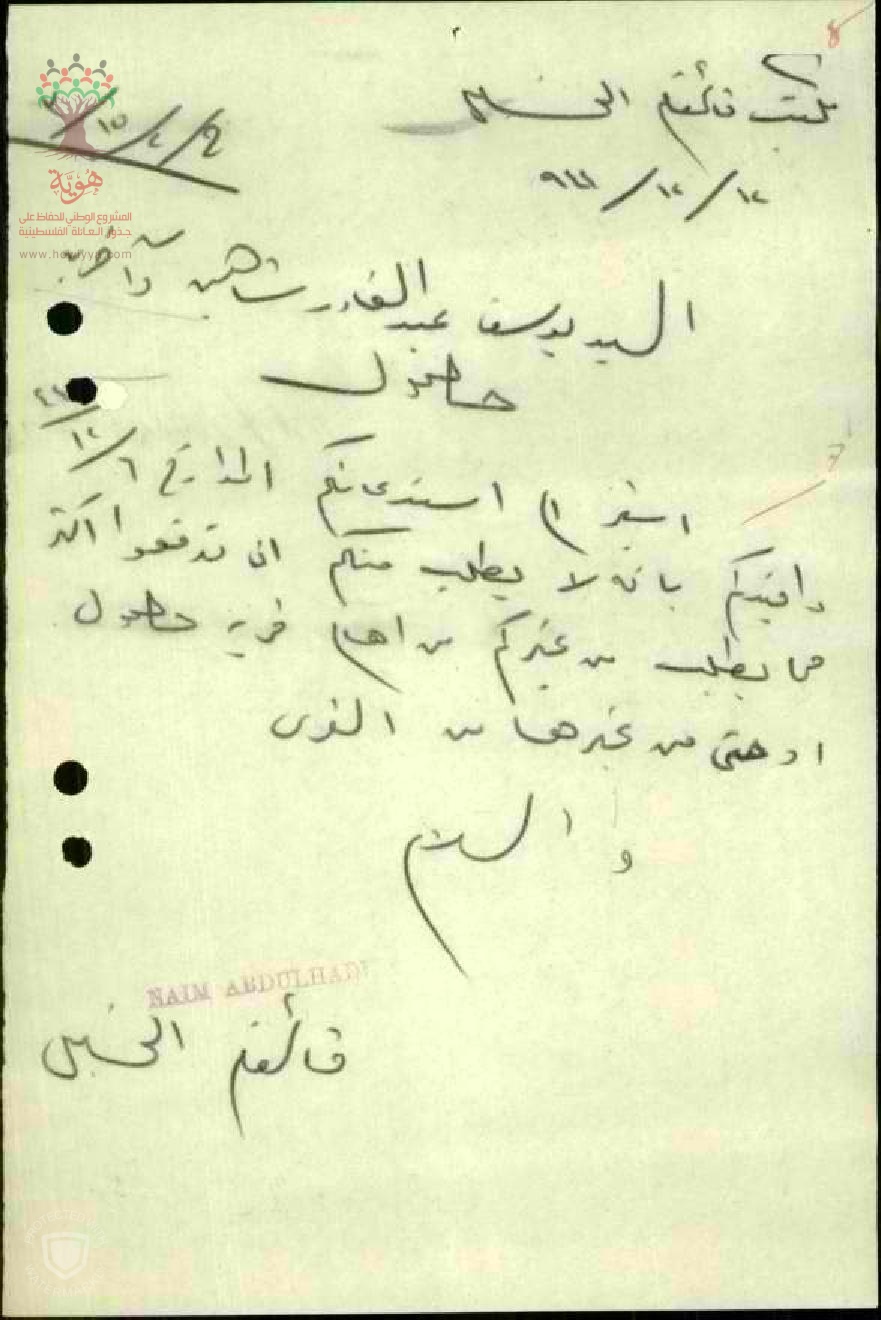 ٨
مكتب قائمقام الخليل
١٢/١٢/٩٤٢
هوية
المشروع الوطني للحفاظ على
جذور العائلة الفلسطينية
www.howiyya.com
السيد يوسف عبد القادر شاهين وآخرين
حلحول
اشير الى استدعائكم المؤرخ ٦/١٢/٤٢
وافيدكم بانه لا يطلب منكم ان تدفعوا اكثر
مما يطلب من غيركم من اهالي قرية حلحول
او حتى من غيرها من القرى
والسلام
NAIM ABDULHADI
قائمقام الخليل